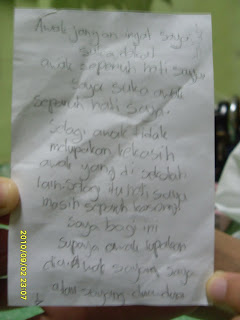 Awak jangan ingat saya
suka
awak separuh hati saya.
saya suka awak
separuh hati saya.
selagi awak tidak
melupakan kekasih
awak yang di sekolah
lain. selagi tu hati saya
masih separuh kosong!
saya bagi ini
supaya awak lupakan
dia. Awak sayang saya
akan sayang
2010/09/02 23:07